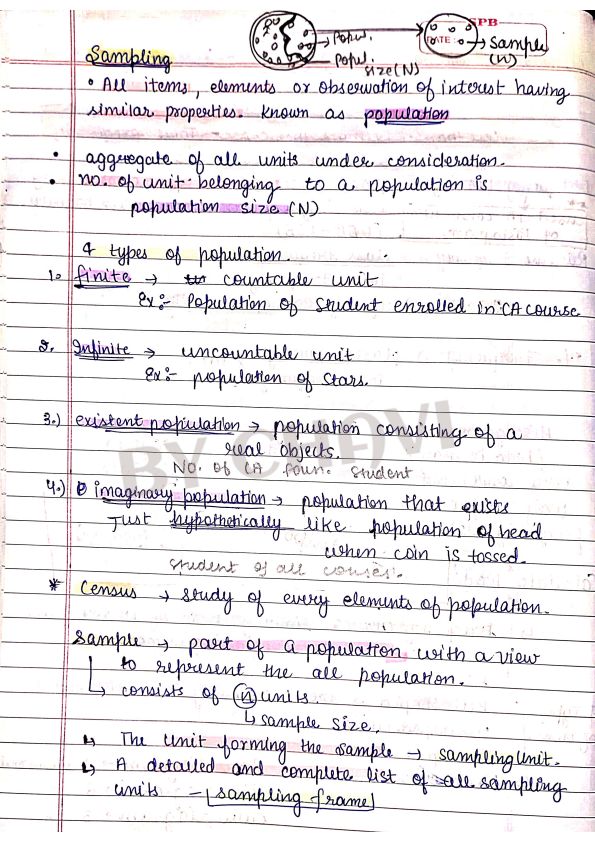 SPB
DATE:
→ Popu.
→ Sample
(n)
Popul.
size(N)
Sampling
• All items, elements or observation of interest having
similar properties. Known as population
• aggregate of all units under consideration.
• no. of unit belonging to a population is
population size (N)
4 types of population.
1. finite → countable unit
Ex:- Population of student enrolled in CA course
2. Infinite → uncountable unit
Ex:- population of stars.
3.) existent population → population consisting of a
real objects.
No. of CA foun. student
BY CHAVI
4.) imaginary population → population that exists
Just hypothetically like population of head
when coin is tossed.
student of all courses.
* Census → study of every elements of population.
Sample → part of a population with a view
to represent the all population.
↳ consists of n units.
↳ sample size.
↳ The unit forming the sample → sampling unit.
↳ A detailed and complete list of all sampling
units - sampling frame